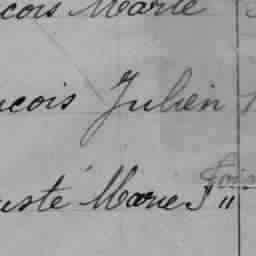 cois Marie
ncois Julien
usté Marie "